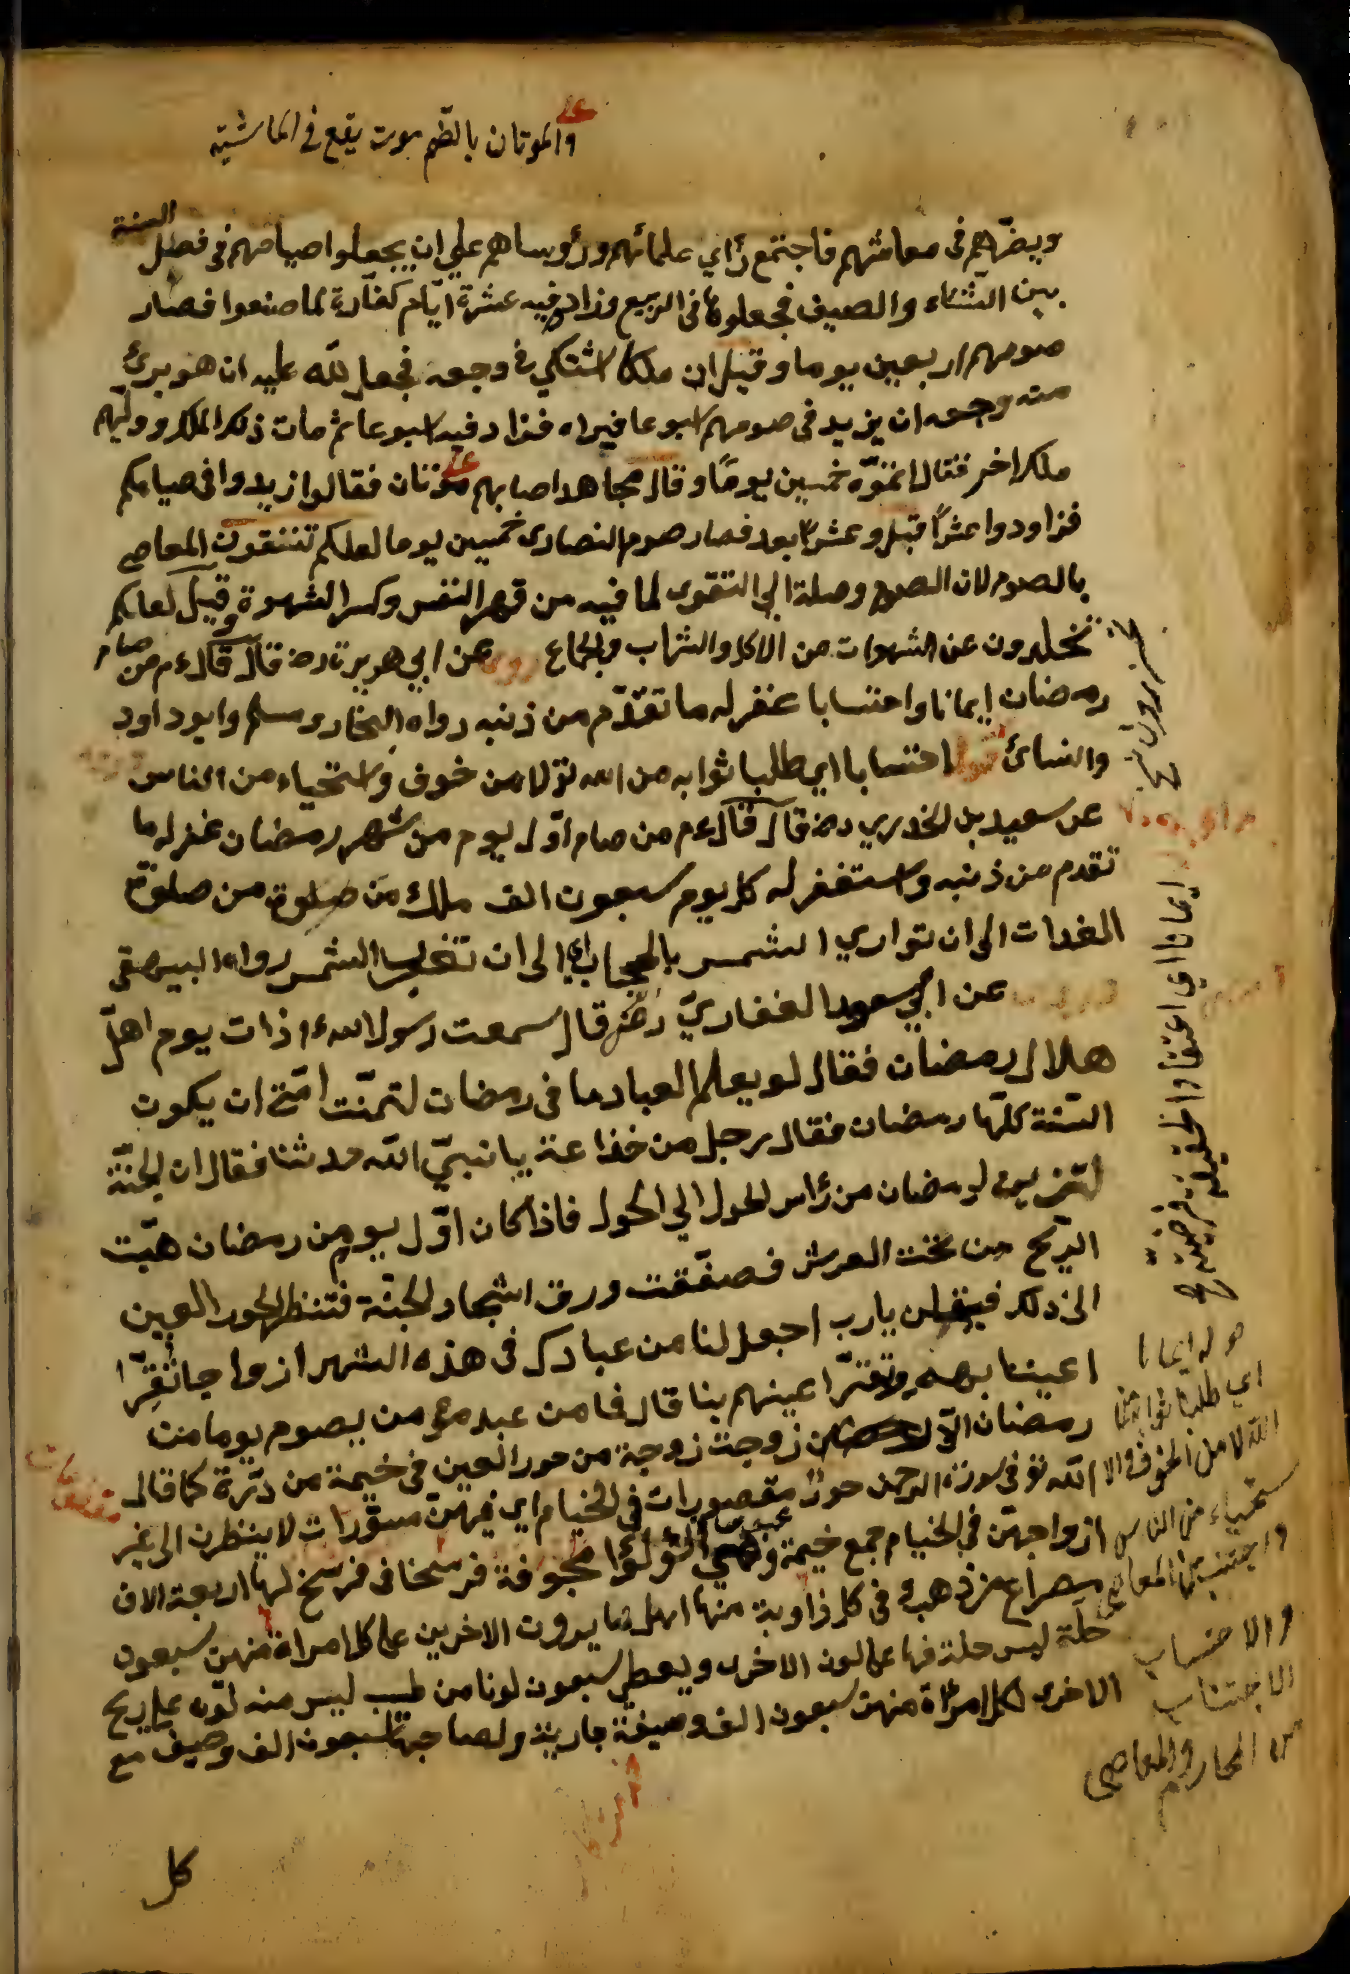 والموتان بالضم موت يقع فى الماشية
ويضرّهم فى معايشهم فاجتمع رأي علمائهم ورؤساهم علي ان يجعلوا صيامهم فى فصل السنة
بين الشتاء والصيف فجعلوها فى الربيع وزاد فيه عشرة ايّام كفّارة لما صنعوا فصار
صومهم اربعين يوما وقيل ان ملكا اشتكي وجعه فجعل لله عليه ان هو برئ
من وجعه ان يزيد فى صومهم اسبوعا فبراه فزاد فيه اسبوعا ثم مات ذلك الملك ووليهم
ملك اخر فقال اتمّوه خمسين يومًا وقال مجاهد اصابهم موتان فقالوا زيدوا فى صيامكم
فزادوا عشرًا قبل وعشرًا بعد فصار صوم النصارى خمسين يوما لعلكم تتقون المعاصي
بالصوم لان الصوم وصلة الي التقوى لما فيه من قهر النفس وكسر الشهوة وقيل لعلكم
تحذرون عن الشهوات من الاكل والشراب والجماع روى عن ابي هريرة رض قال قال ءم من صام
رمضان إيمانا واحتسابا غفر له ما تقدّم من ذنبه رواه البخارى ومسلم وابو داود
والنسائ قوله احتسابا اي طلبا ثوابه من الله تع لا من خوف واستحياء من الناس
عن سعيد بن الخدري رض قال قال ءم من صام اوّل يوم من شهر رمضان غفر له ما
تقدم من ذنبه واستغفر له كل يوم سبعون الف ملك من صلوة من صلوة
الغدات الى ان تواري الشمس بالحجاب اي الى ان تغرب الشمس رواه البيهقى
عن ابي مسعود الغفاريّ رض قال سمعت رسول الله ءم ذات يوم اهلّ
هلال رمضان فقال لو يعلم العباد ما فى رمضان لتمنّت امّتي ان يكون
السّنة كلّها رمضان فقال رجل من خذاعة يا نبيّ الله حدثنا فقال ان الجنّة
لتزين لرمضان من رأس الحول الي الحول فاذا كان اوّل يوم من رمضان هبّت
الريح من تحت العرش فصفّقت ورق اشجار الجنّة فتنظر الحور العين
الى ذلك فيقلن يارب اجعل لنا من عبادك فى هذه الشهر ازواجا تُقِرّ
اعيننا بهم وتقرّ اعينهم بنا قال فما من عبد من يصوم يوما من
رمضان الاّ زوجت زوجة من حور العين فى خيمة من درّة كما قال
الله تع فى سورة الرحمن حورٌ مقصورات فى الخيام اي فيهنّ مستّرات لا ينظرن الى غير
ازواجهنّ في الخيام جمع خيمة وهي لؤلؤا مجوفة فرسخا فى فرسخ لها اربعة الاف
مصراع من ذهب فى كل زاوية منها اهل ما يرون الاخرين على كل امراة منهن سبعون
حلّة ليس حلة فيها على لون الاخرى ويعطي سبعون لونا من طيب ليس منه لون على ريح
الاخرى لكل امرأة منهن سبعون الف وصيفة جارية ولصاحبها سبعون الف وصيف مع
كل
ايمانا اي اعتقادا لحقيقة فرضيته
قوله ايمانا
اي طلبا ثوابه من
الله لا من الخوف والا
ستحياء من الناس
واجتنب عن المعاصي
والاحتساب
الاجتناب
من المحارم والمعاصي